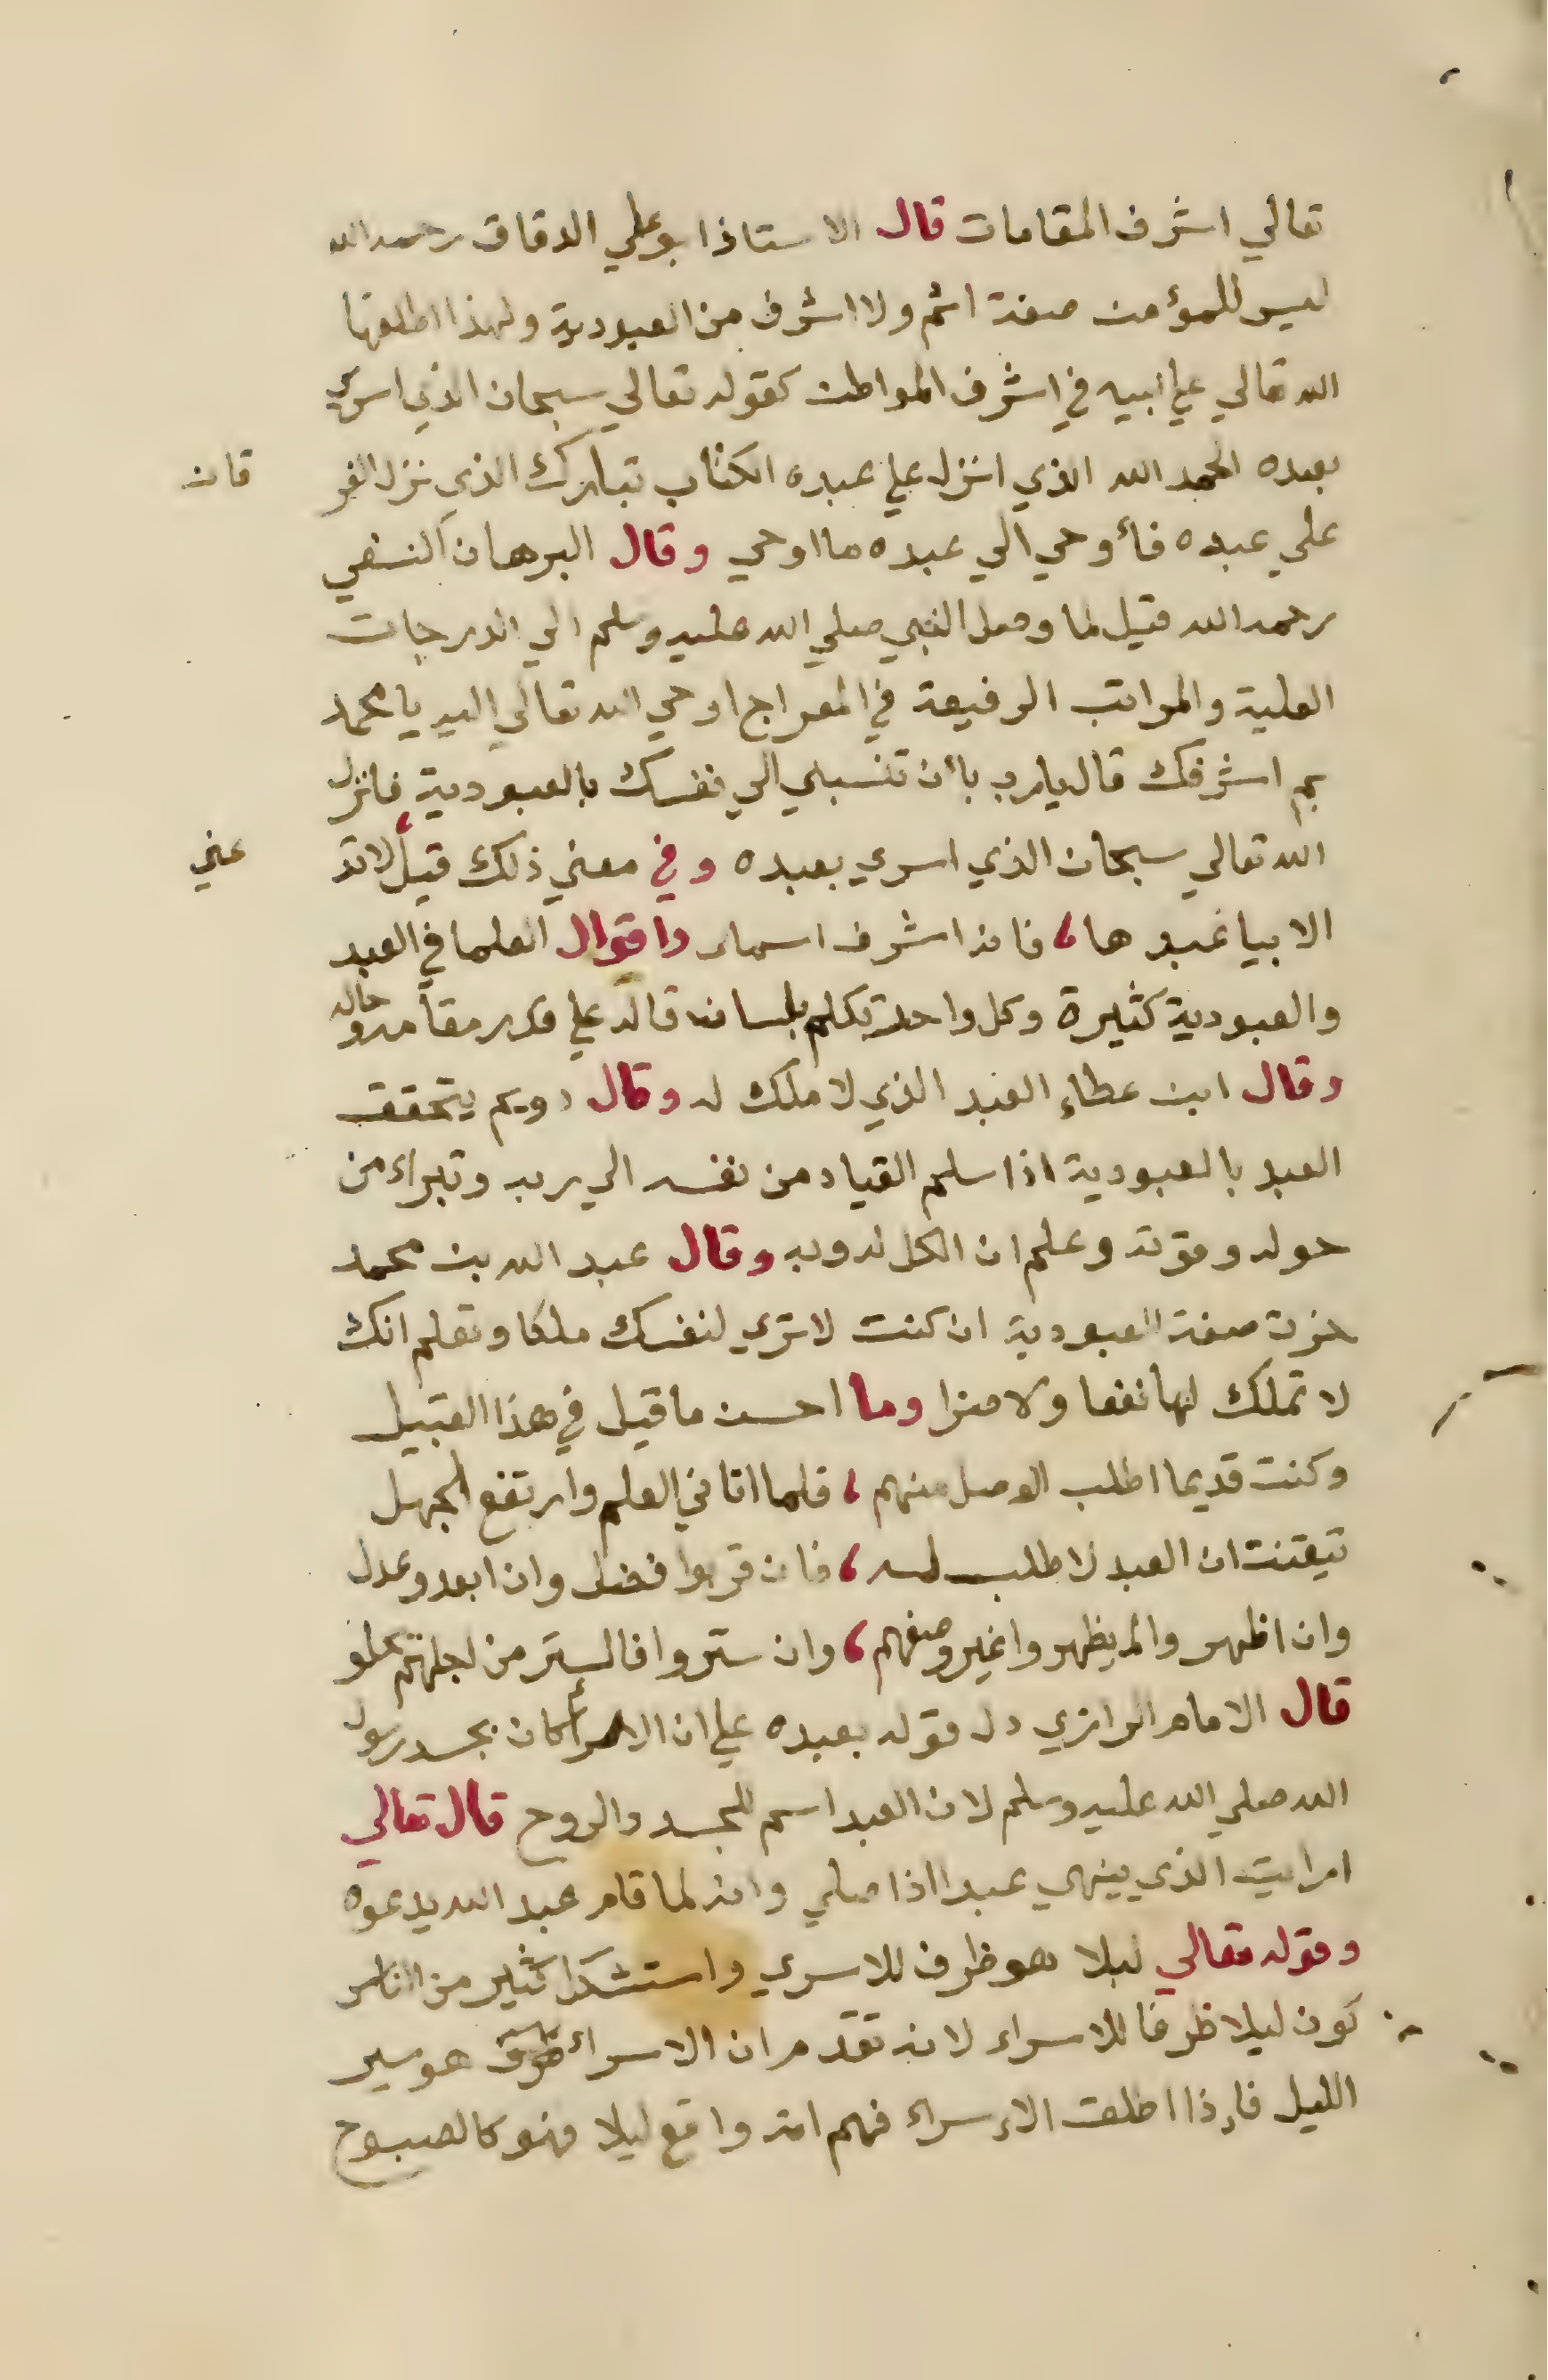 تعالي اشرف المقامات قال الاستاذ ابو علي الدقاق رحمه الله
ليس للمؤمن صفة اتم ولا اشرف من العبودية ولهذا اطلقها
الله تعالي علي نبيه في اشرف المواطن كقوله تعالي سبحان الذي اسري
بعبده الحمد الله الذي انزل علي عبده الكتاب تبارك الذي نزل الفر قان
علي عبده فأوحي الي عبده ما اوحي وقال البرهان النسفي
رحمه الله قيل لما وصل النبي صلي الله عليه وسلم الي الدرجات
العلية والمراتب الرفيعة في المعراج اوحي الله تعالي اليه يا محمد
بم اشرفك قال يارب بأن تنسبني الي نفسك بالعبودية فانزل
الله تعالي سبحان الذي اسري بعبده وفي معني ذلك قيل لا تد عني
الا بيا عبدها، فانه اشرف اسماء واقوال العلما في العبد
والعبودية كثيرة وكل واحد تكلم بلسان قاله علي قدر مقامه وحاله
وقال ابن عطاء العبد الذي لا ملك له وقال رويم يتحقق
العبد بالعبودية اذا سلم القياد من نفسه الي ربه وتبراء من
حوله وقوته وعلم ان الكل له وبه وقال عبد الله بن محمد
حزت صفة العبودية ان كنت لا تري لنفسك ملكا وتعلم انك
لا تملك لها نفعا ولا ضرا وما احسن ما قيل في هذا القبيل
وكنت قديما اطلب الوصل منهم، فلما اتاني العلم وارتفع الجهل
تيقنت ان العبد لا طلب له، فان قربوا فضل وان ابعدو عدل
وان اظهروا لم يظهروا غير وصفهم، وان ستروا فالستر من اجلهم يحلو
قال الامام الرازي دل قوله بعبده علي ان الاسرأ كان بجسد رسول
الله صلي الله عليه وسلم لان العبد اسم للجسد والروح قال تعالي
ارايت الذي ينهي عبدا اذا صلي وانه لما قام عبد الله يدعوه
وقوله تعالي ليلا هو ظرف للاسري واستشكل كثير من الناس
كون ليلا ظرفا للاسراء لانه تقدم ان الاسراء هو سير
الليل فإذا اطلق الاءسراء فهم انه واقع ليلا فهو كالصبوح